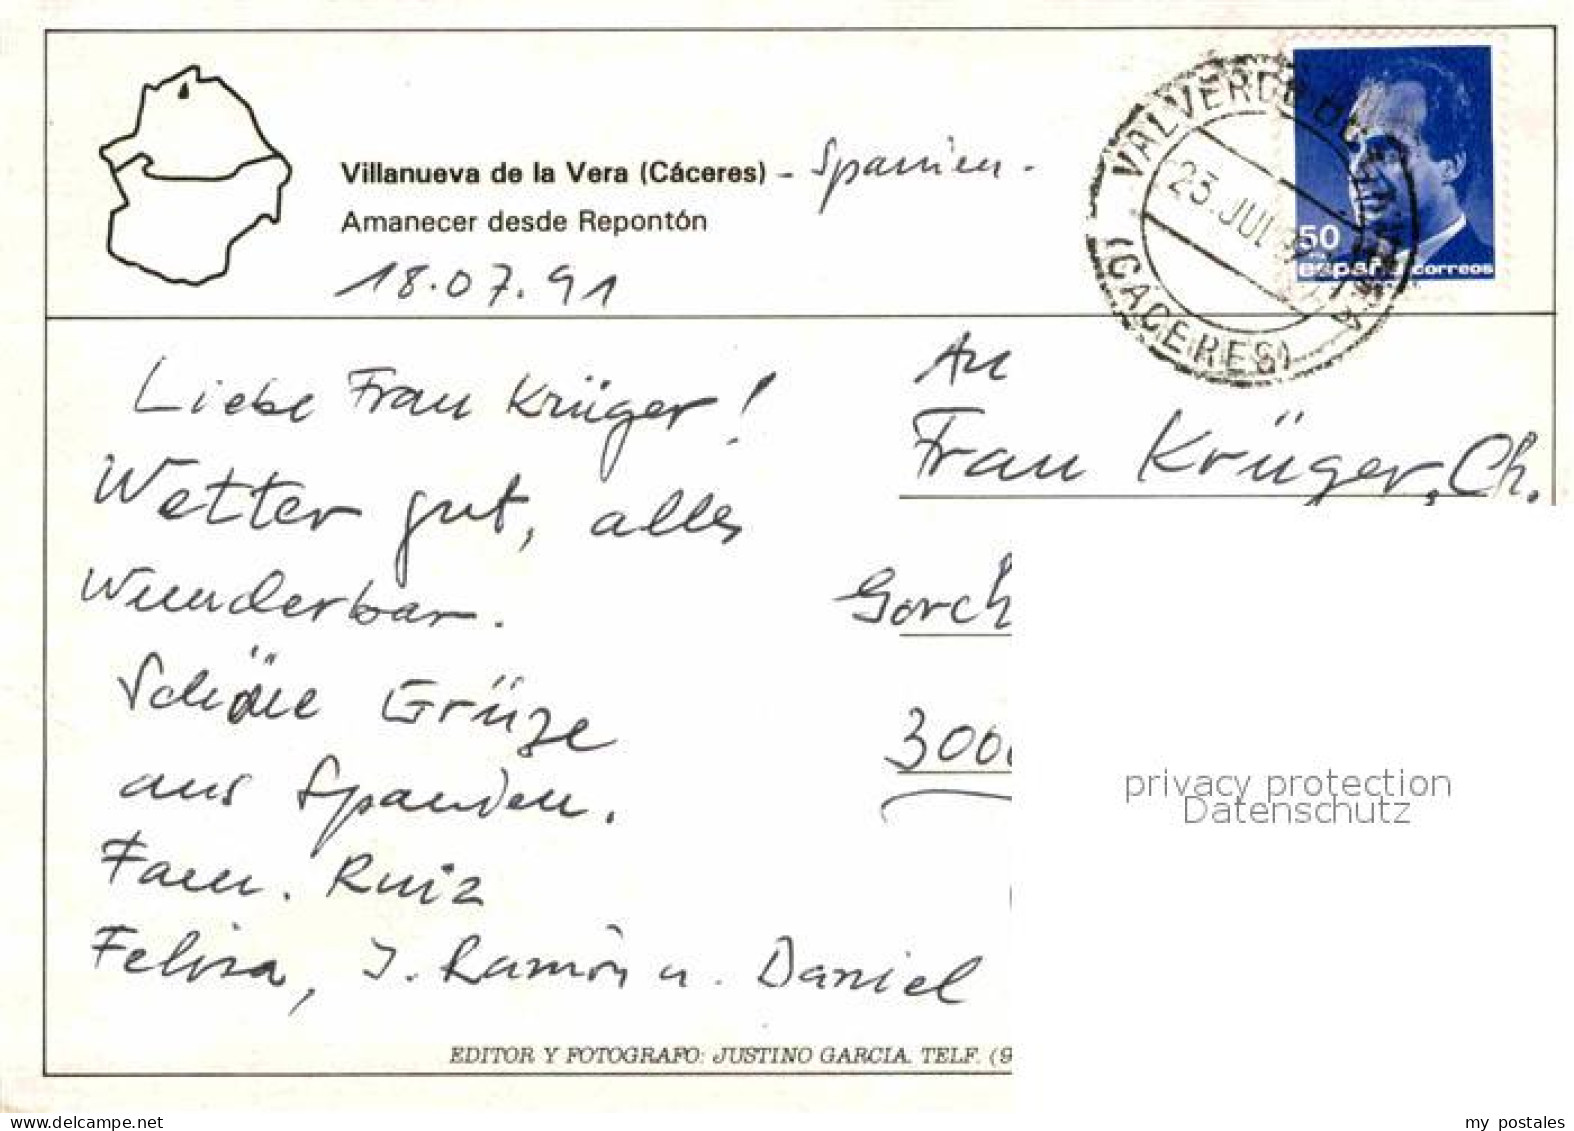 Villanueva de la Vera (Cáceres) - Spanien.
Amanecer desde Repontón
18.07.91
VALVERDE DE LA VERA
25. JUL
(CACERES)
50
españa correos
Liebe Frau Krüger!
Wetter gut, alles
Wunderbar.
Schöne Grüze
aus Spanien.
Fam. Ruiz
Felisa, J. Ramón u. Daniel
An
Frau Krüger, Ch.
Gorch
3000
privacy protection
Datenschutz
EDITOR Y FOTOGRAFO: JUSTINO GARCIA. TELF. (9
www.delcampe.net
my postales